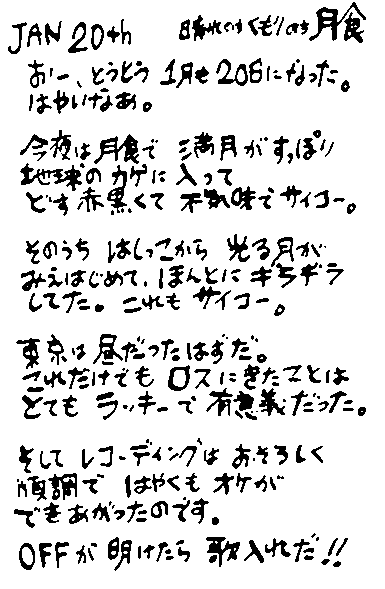 JAN 20th 晴れのちくもりのち月食
おー、とうとう 1月も20日になった。
はやいなあ。
今夜は月食で 満月がすっぽり
地球のカゲに入って
どす赤黒くて 不気味でサイコー。
そのうち はしっこから 光る月が
みえはじめて、ほんとに ギラギラ
してた。これも サイコー。
東京は昼だったはずだ。
これだけでも ロスにきたことは
とても ラッキーで 有意義だった。
そして レコーディングは おそろしく
順調で はやくも オケが
できあがったのです。
OFFが 明けたら 歌入れだ!!